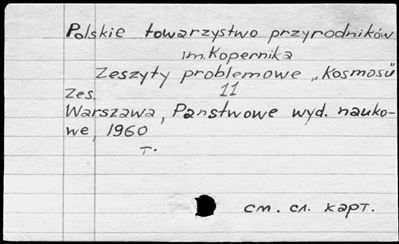 Polskie towarzystwo przyrodników
im. Kopernika
Zeszyty problemowe „Kosmosu"
Zes. 11
Warszawa, Państwowe wyd. nauko-
we, 1960
т.
см. сл. карт.